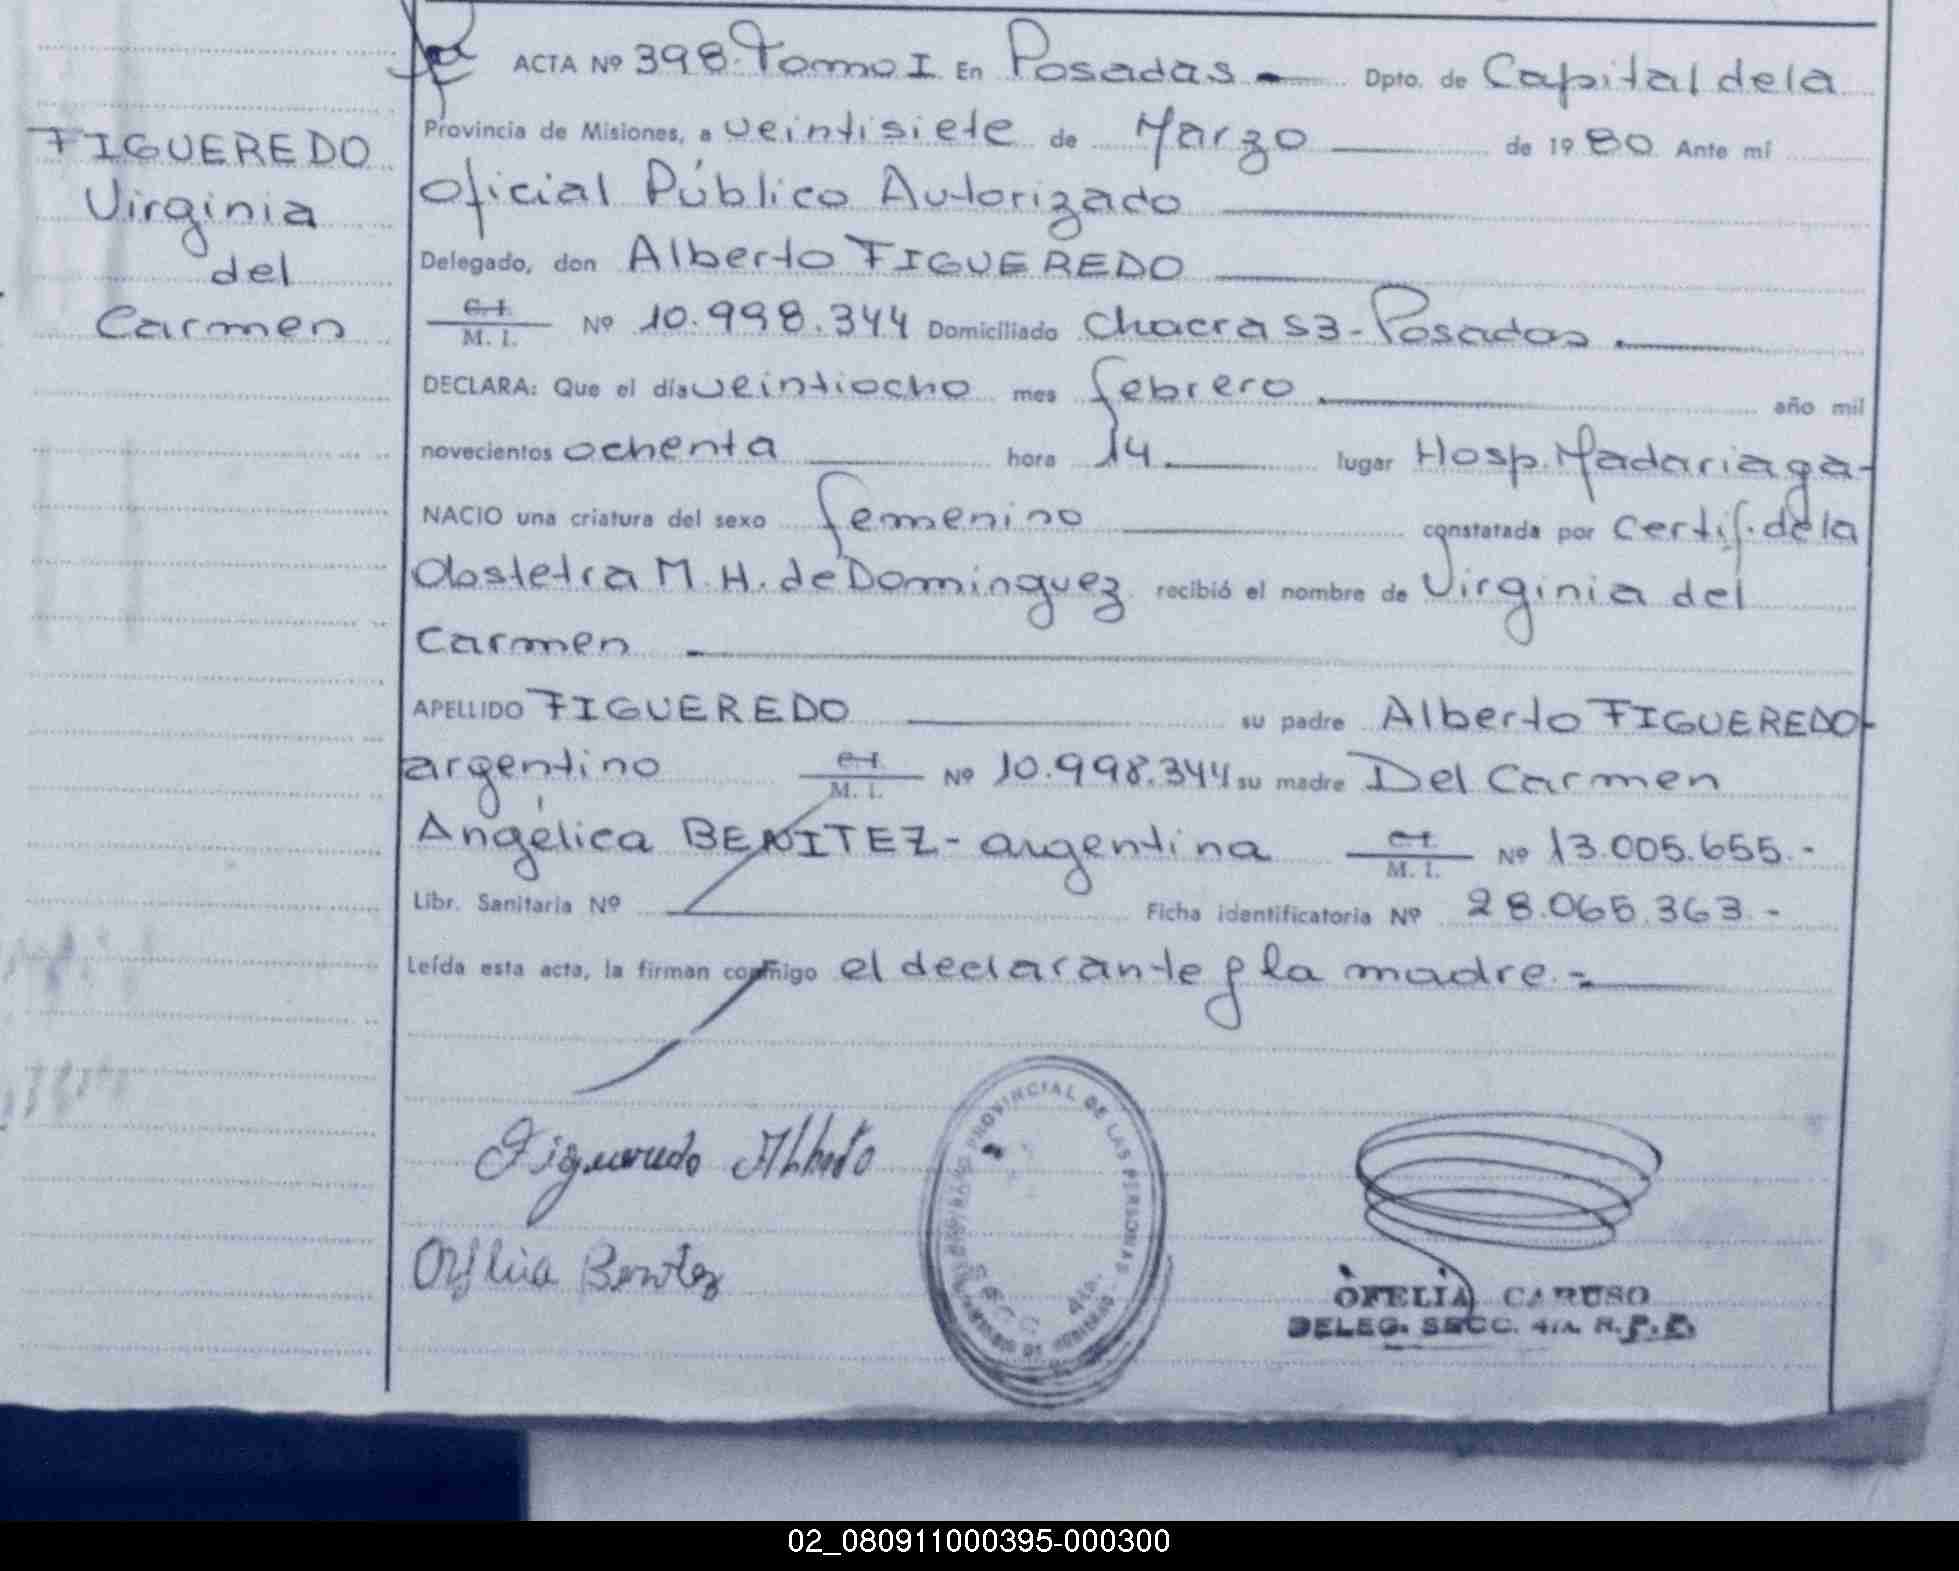 FIGUEREDO
Virginia
del
Carmen
ACTA Nº 398. Tomo I En Posadas Dpto. de Capital de la
Provincia de Misiones, a veintisiete de Marzo de 1980 Ante mí
Oficial Público Autorizado
Delegado, don Alberto FIGUEREDO
C. I.
M. I. Nº 10.998.344 Domiciliado Chacra 53 - Posadas.
DECLARA: Que el día veintiocho mes febrero año mil
novecientos ochenta hora 14 lugar Hosp. Madariaga-
NACIO una criatura del sexo femenino constatada por certif. de la
Obstetra M. H. de Dominguez recibió el nombre de Virginia del
Carmen
APELLIDO FIGUEREDO su padre Alberto FIGUEREDO-
argentino C. I.
M. I. Nº 10.998.344 su madre Del Carmen
Angélica BENITEZ - argentina C. I.
M. I. Nº 13.005.655.-
Libr. Sanitaria Nº Ficha identificatoria Nº 28.065.363.-
Leída esta acta, la firman conmigo el declarante y la madre.=
Figueredo Alberto
Benitez
PROVINCIAL DE LAS PERSONAS
OFELIA CARUSO
DELEG. SECC. 4ta. R.P.P.
02_080911000395-000300